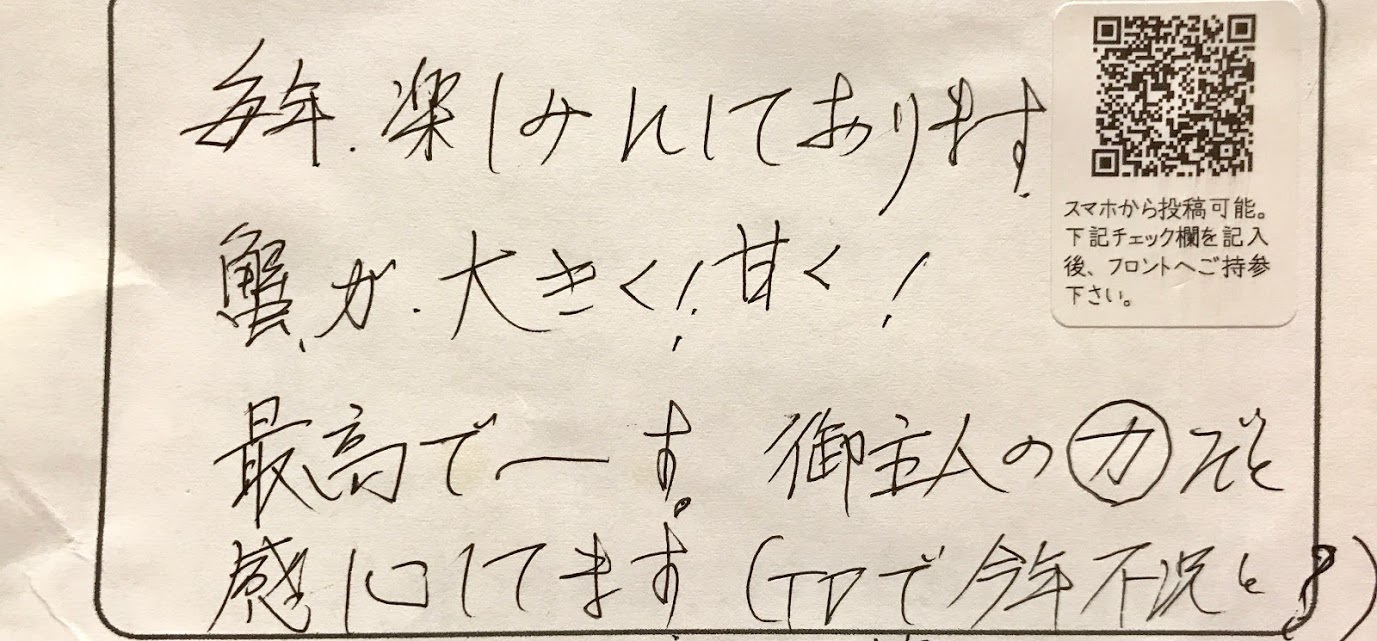 毎年.楽しみにしております.
スマホから投稿可能。
下記チェック欄を記入
後、フロントへご持参
下さい。
蟹が.大きく!甘く!
最高で〜す。 御主人の力だと
感心してます (TVで今年不況と)